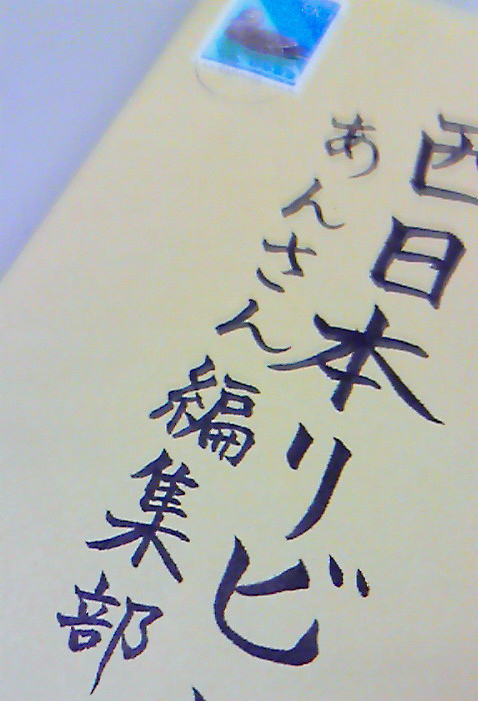 西日本リビ
あんさん編集部